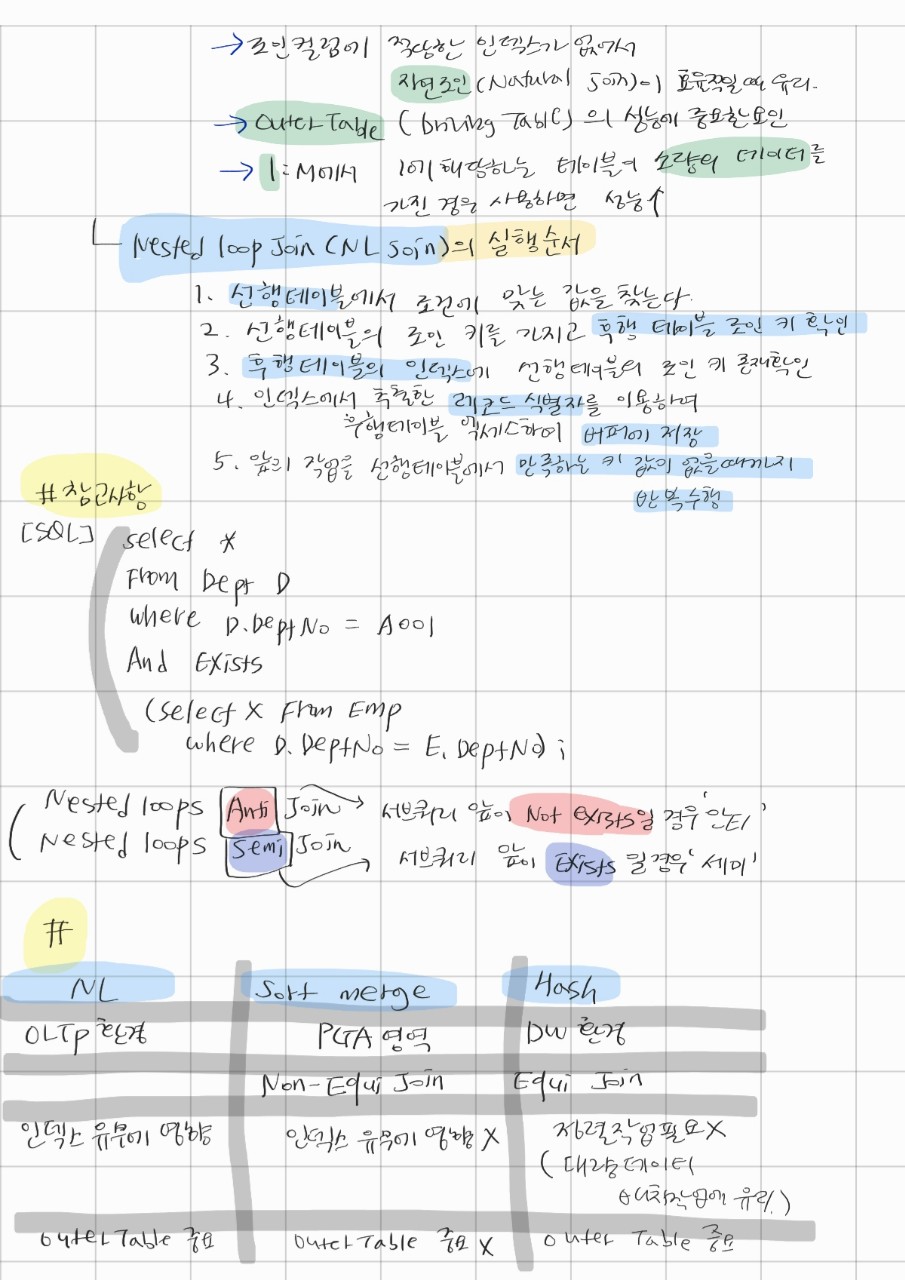 → 조인컬럼에 적당한 인덱스가 없어서
자연조인(Natural Join)이 효율적일 때 유리.
→ Outer Table (Driving Table)의 성능에 중요한요인
→ 1:M에서 1에 해당하는 테이블에 소량의 데이터를
가진 경우 사용하면 성능↑
Nested loop Join (NL Join)의 실행순서
1. 선행테이블에서 조건에 맞는 값을 찾는다.
2. 선행테이블의 조인 키를 가지고 후행 테이블 조인 키 확인
3. 후행테이블의 인덱스에 선행테이블의 조인 키 존재확인
4. 인덱스에서 추출한 레코드 식별자를 이용하여
후행테이블 엑세스하여 버퍼에 저장
5. 앞의 작업을 선행테이블에서 만족하는 키 값이 없을때까지
반복수행
# 참고사항
[SQL] select *
From Dept D
where D.DeptNo = A001
And Exists
(select X From Emp
where D.DeptNo = E.DeptNo) ;
Nested loops Anti Join → 서브쿼리 앞이 Not exists일 경우 '안티'
Nested loops Semi Join → 서브쿼리 앞이 Exists 일경우 '세미'
#
NL Sort merge Hash
OLTP 환경 PGA 영역 DW 환경
Non-Equi Join Equi Join
인덱스 유무에 영향 인덱스 유무에 영향 X 정렬작업필요X
(대량데이터
배치작업에 유리.)
outer Table 중요 outer Table 중요 X outer Table 중요